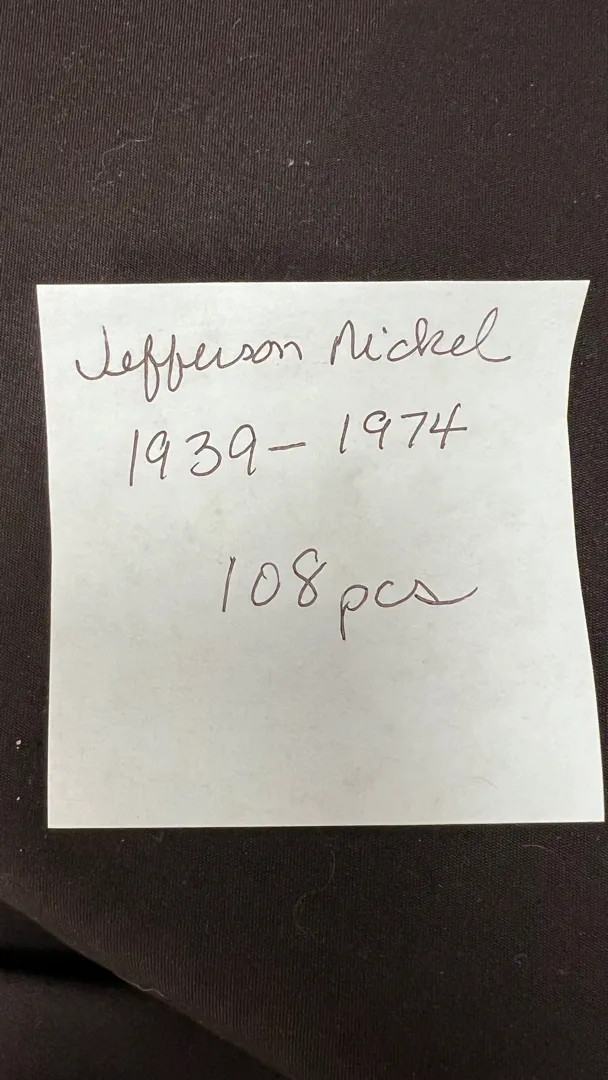 Jefferson Nickel
1939 - 1974
108 pcs